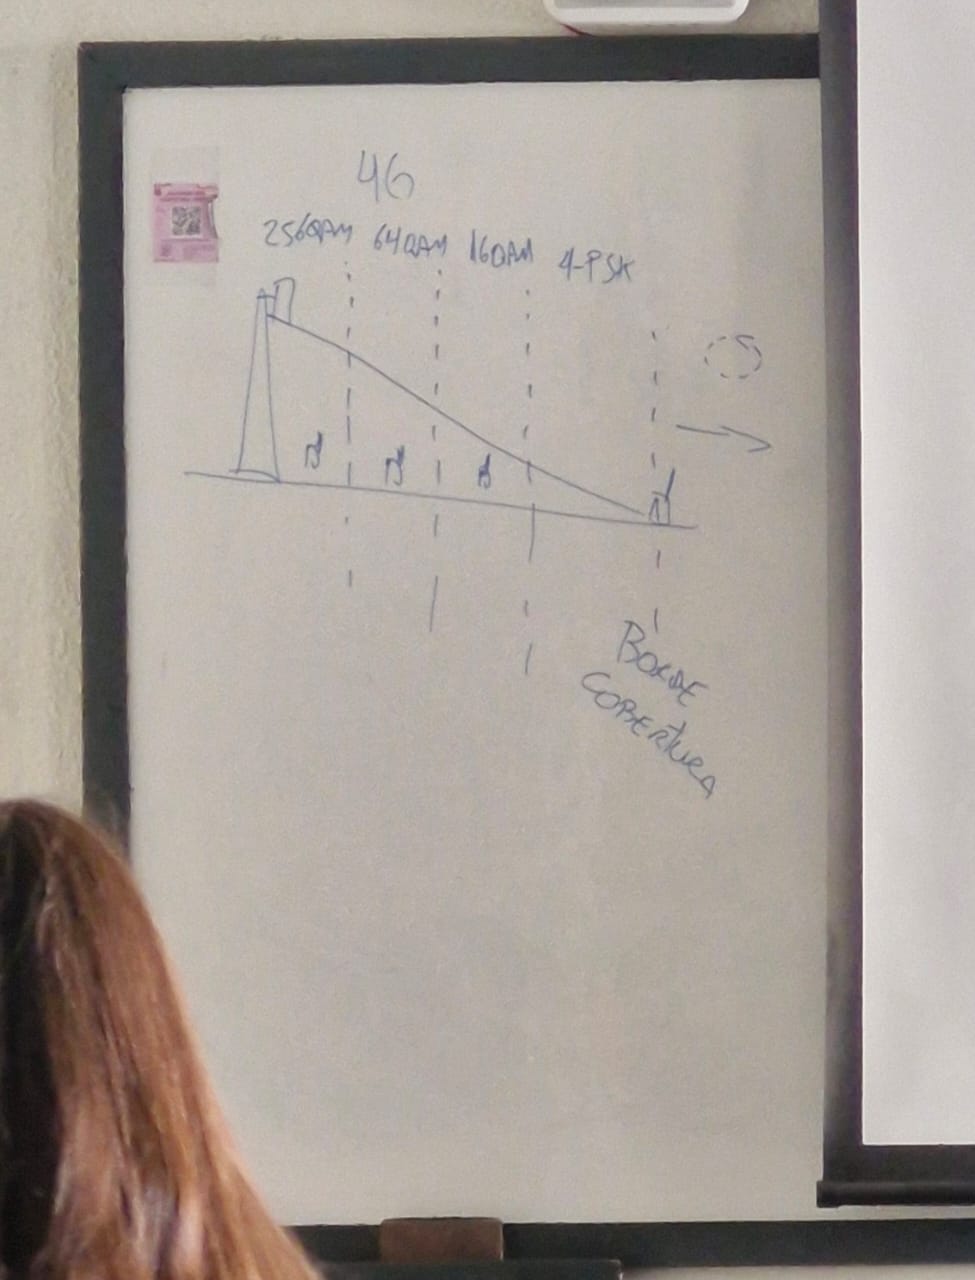 4G
256QAM 64QAM 16QAM 4-PSK
BORDE
COBERTURA